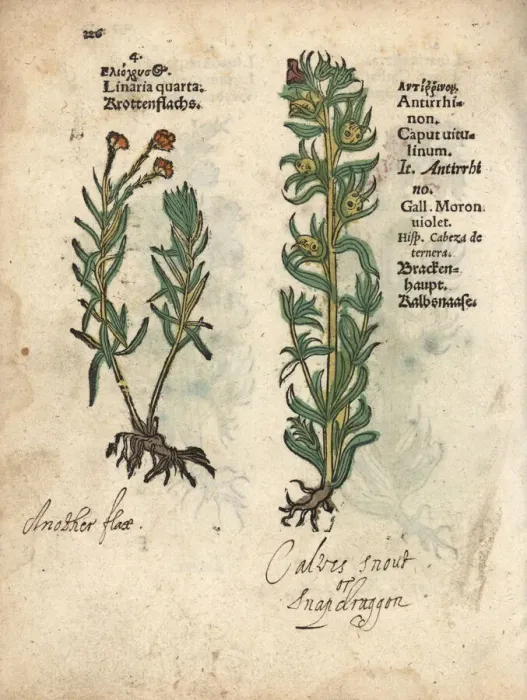 226
4.
Ελιόχρυσ⊕.
Linaria quarta.
Krottenflachs.
Another flax.
Αντίῤῥινον.
Antirrhi-
non.
Caput uitu-
linum.
It. Antirrhi
no.
Gall. Moron
uiolet.
Hisp. Cabeza de
ternera.
Bracken-
haupt.
Kalbsnaase.
Calves snout
or
Snapdraggon